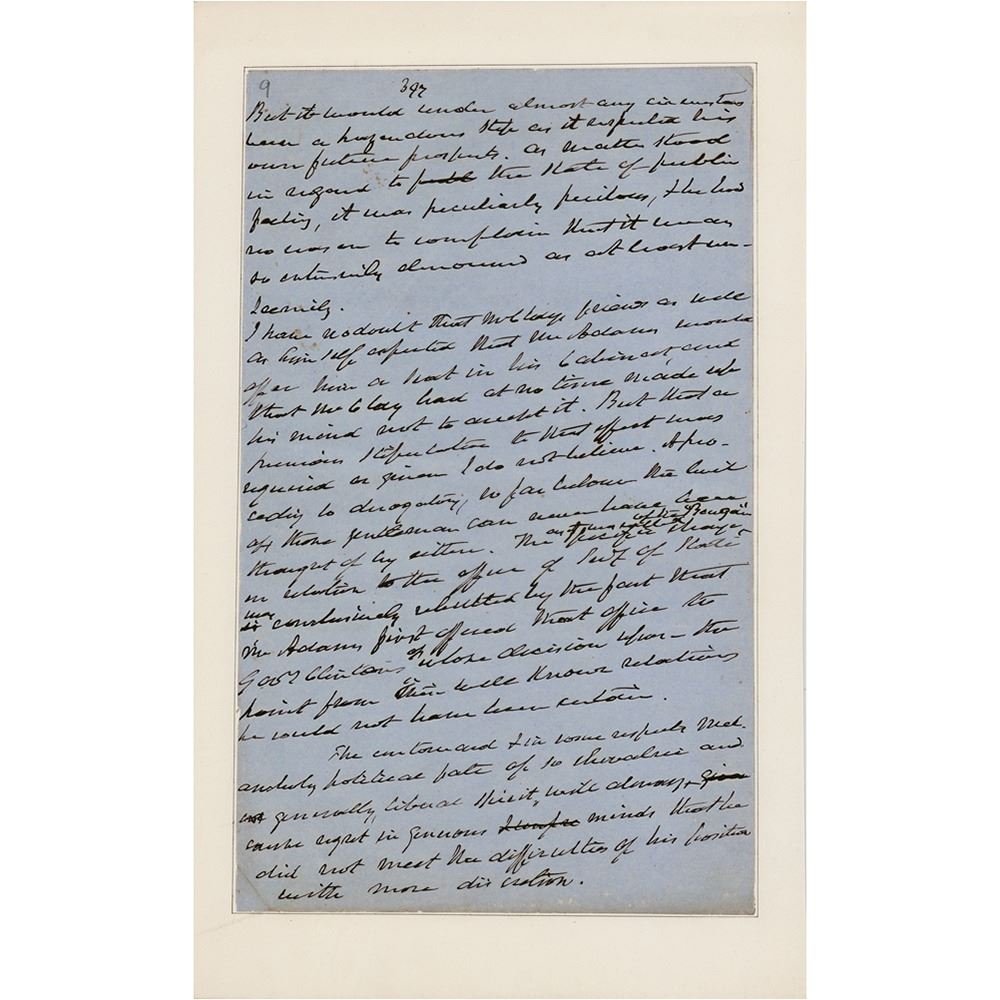 9
397
But it would under almost any circumstances
been a hazardous step as it respected his
own future prospects. As matters stood
in regard to publ the State of public
feeling, it was peculiarly perilous, & he had
no reason to complain that it was
so extensively denounced as at least un-
seemly.
I have no doubt that Mr Clays friends as well
as himself expected that Mr Adams would
offer him a seat in his Cabinet, and
that Mr Clay had at no time made up
his mind not to accept it. But that a
previous stipulation to that effect was
required or given I do not believe. A pro-
ceeding so derogatory, so far below the level
of those gentlemen can never have been
thought of by either. The
as
of the Bargain
in relation to the office of Secy of State
was
is conclusively rebutted by the fact that
Mr Adams first offered that office to
Govr Clinton, of whose decision upon the
point from their well known relations
he could not have been certain.
The untoward & in some respects mel-
ancholy political fate of so chivalric and
generally liberal spirit, will always
cause regret in generous minds that he
did not meet the difficulties of his position
with more discretion.